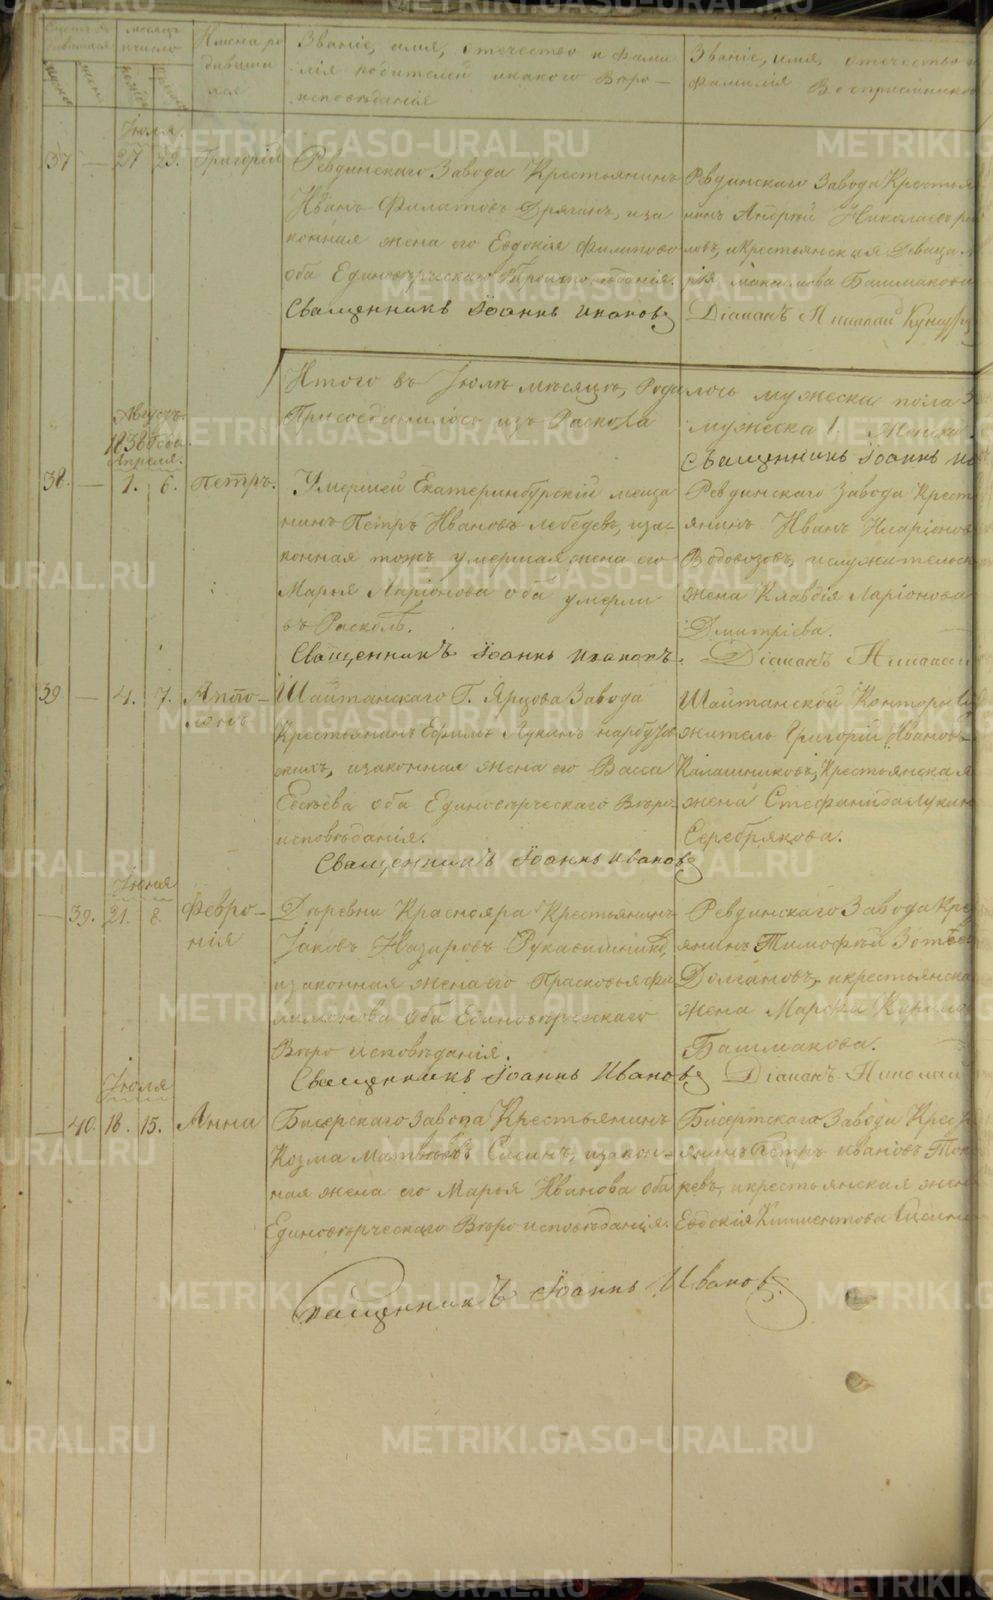 Счетъ ро
дившихся
мѣсяцъ
и число
Имена ро
дивших
ся
Званіе, имя, отечество и фами
лія родителей и какого вѣро—
исповѣданія
Званіе, имя, отечество и
фамилія Воспріемников
Іюля
37 — 27 29. Григорій
Ревдинскаго Завода Крестьянинъ
Иванъ Филатовъ Дрягинъ, иза
конная жена его Евдокія Филипова
оба Единовѣрческаго Вѣроисповѣданія.
Священникъ Іоаннъ Ивановъ
Ревдинскаго Завода Крестья
нинъ Андрей Николаевъ
ловъ, и крестьянская девица
рія Максимова Башмакова
Діаконъ Николай
Итого въ Іюлѣ мѣсяцѣ, Родилось мужеска пола 3
Присоединилось изъ Раскола мужеска 1. Женска
Священникъ Іоаннъ Ив
Августъ.
1836 года
Апреля.
38. — 1. 6. Петръ.
Умершей Екатеринбургскій меща
нинъ Петръ Ивановъ Лебедевъ, иза-
конная тожъ умершая жена его
Марья Ларіонова оба умерли
въ Расколѣ.
Священникъ Іоаннъ Ивановъ.
Ревдинскаго Завода Крест
янинъ Иванъ Иларіонов
Водовозовъ, и служительск
жена Клавдія Ларіонова
Дмитріева.
Діаконъ Николай
39 — 4. 7. Аппо-
лонъ
Шайтанскаго Г. Ярцова Завода
Крестьянинъ Ефимъ Лукинъ
скихъ, изаконная жена его Васса
Евсѣева оба Единовѣрческаго Вѣро
исповѣданія.
Священникъ Іоаннъ Ивановъ
Шайтанской Конторы Слу
житель Григорій Иванов
Калашниковъ, Крестьянская
жена Стефанида Лукин
Серебрякова.
Іюня
— 39. 21. 8. Февро—
нія
Деревни Краснояра Крестьянинъ
Іаковъ Назаровъ Рукавишников,
изаконная жена его Прасковья Фи
лимонова оба Единовѣрческаго
Вѣро исповѣданія.
Священникъ Іоаннъ Ивановъ
Ревдинскаго Завода Кре
янинъ Тимофѣй Зотѣев
Долгановъ, и крестьянска
жена Марфа Карпов
Башмакова.
Діаконъ Николай
Іюля
— 40. 18. 15. Анна
Бисерскаго Завода Крестьянинъ
Козма Матвѣевъ Сисинъ, изакон-
ная жена его Марья Иванова оба
Единовѣрческаго Вѣро исповѣданія.
Бисертскаго Завода Крест
янинъ Петръ Ивановъ Ток
ревъ, и крестьянская жена
Евдокія Климентова Сисина
Священникъ Іоаннъ Ивановъ.
METRIKI.GASO-URAL.RU